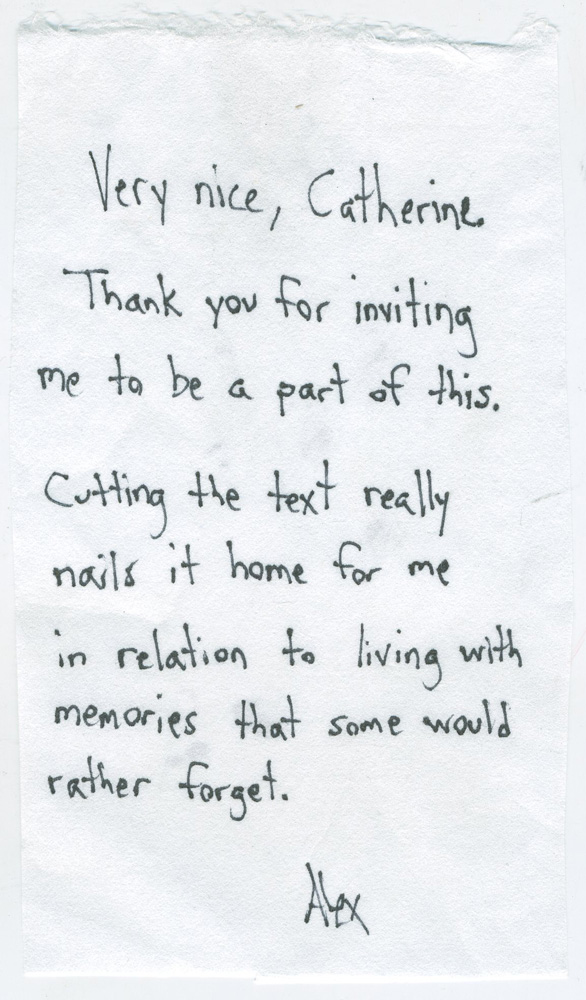 Very nice, Catherine.
Thank you for inviting
me to be a part of this.
Cutting the text really
nails it home for me
in relation to living with
memories that some would
rather forget.
Alex